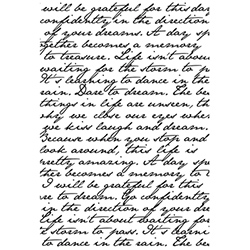 will be grateful for this day
confidently in the direction
of your dreams. A day sp
gether becomes a memory
to treasure. Life isn't about
waiting for the storm to p
It's learning to dance in the
rain. Dare to dream. The be
things in life are unseen, th
why we close our eyes when
we kiss laugh and dream.
Because when you stop and
look around, this life is
pretty amazing. A day spe
ther becomes a memory to t
I will be grateful for this
re to dream. Go confidently
in the direction of your dre
Life isn't about waiting for
t storm to pass. It's learn
to dance in the rain. The be